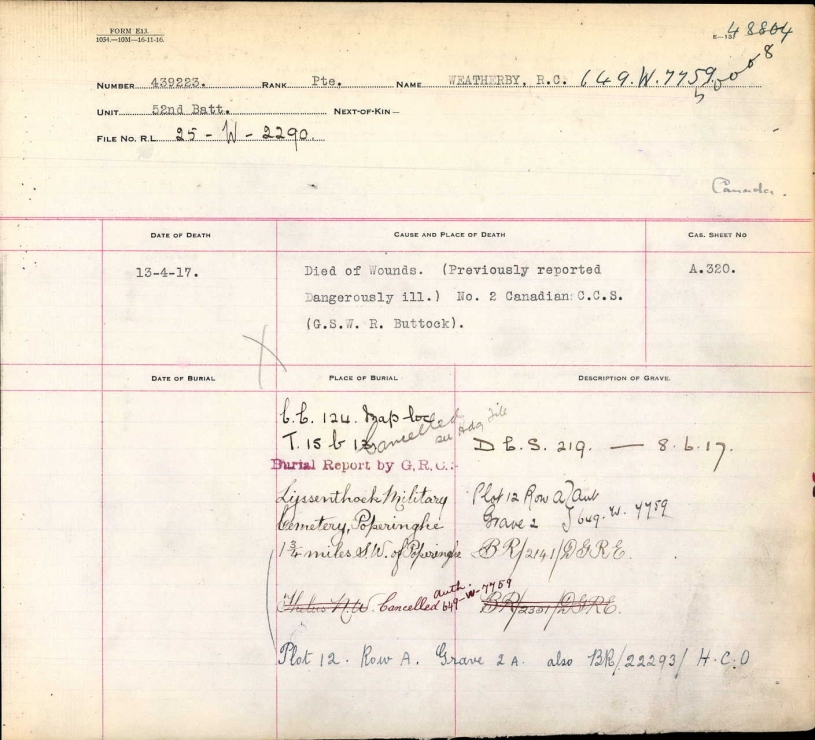 FORM E13.
1054.—10M—16-11-16.
E-13 48804
NUMBER 439223. RANK Pte. NAME WEATHERBY, R.C. 649.W.7759
UNIT 52nd Batt. NEXT-OF-KIN—
FILE NO. R.L. 25 - W - 2290.
Canada.
DATE OF DEATH CAUSE AND PLACE OF DEATH CAS. SHEET NO
13-4-17. Died of Wounds. (Previously reported A.320.
Dangerously ill.) No. 2 Canadian C.C.S.
(G.S.W. R. Buttock).
DATE OF BURIAL PLACE OF BURIAL DESCRIPTION OF GRAVE.
C.C. 124. Map loc
T. 15 b Cancelled D.C.S. 219. — 8.6.17.
Burial Report by G.R.C:-
Lijssenthoek Military Plot 12 Row A } Aut
Cemetery, Poperinghe Grave 2 649.W.7759
1 3/4 miles S.W. of Poperinghe BR/2141/DGRE.
Thelus N.W. Cancelled auth. 649-W-7759 BR/2301/DGRE.
Plot 12. Row A. Grave 2A. also BR/22293/H.C.O